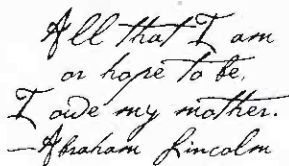 All that I am
or hope to be,
I owe my mother.
—Abraham Lincoln